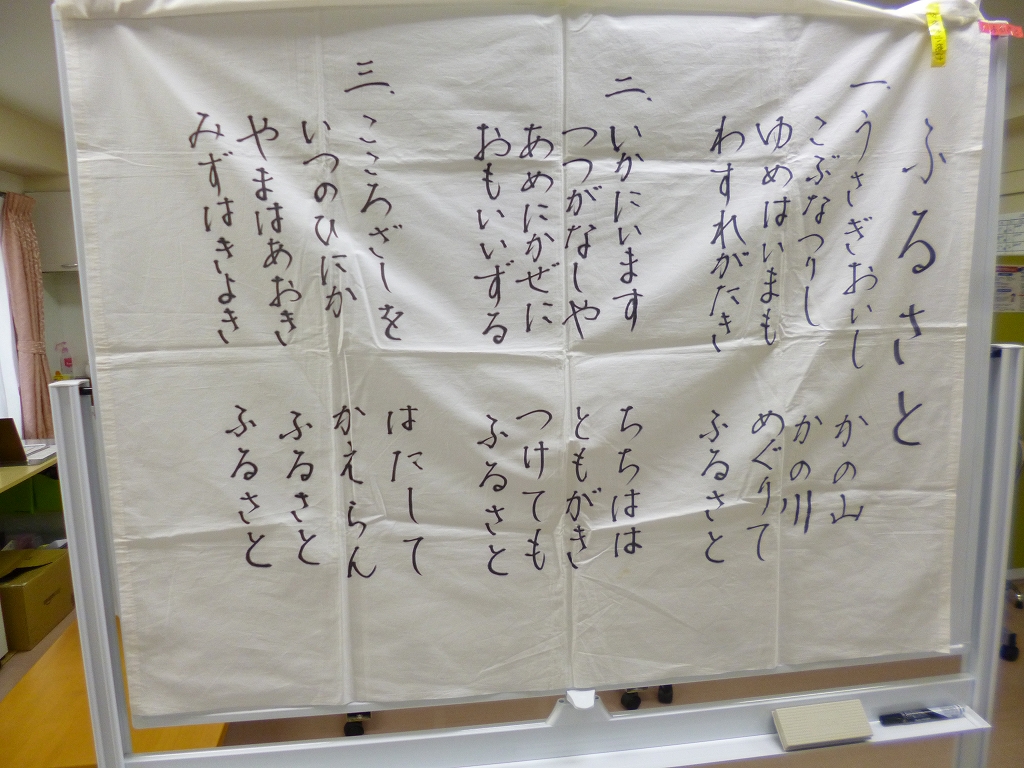 ふるさと
一、うさぎおいし かの山
こぶなつりし かの川
ゆめはいまも めぐりて
わすれがたき ふるさと
二、いかにいます ちちはは
つつがなしや ともがき
あめにかぜに つけても
おもいいずる ふるさと
三、こころざしを はたして
いつのひにか かえらん
やまはあおき ふるさと
みずはきよき ふるさと